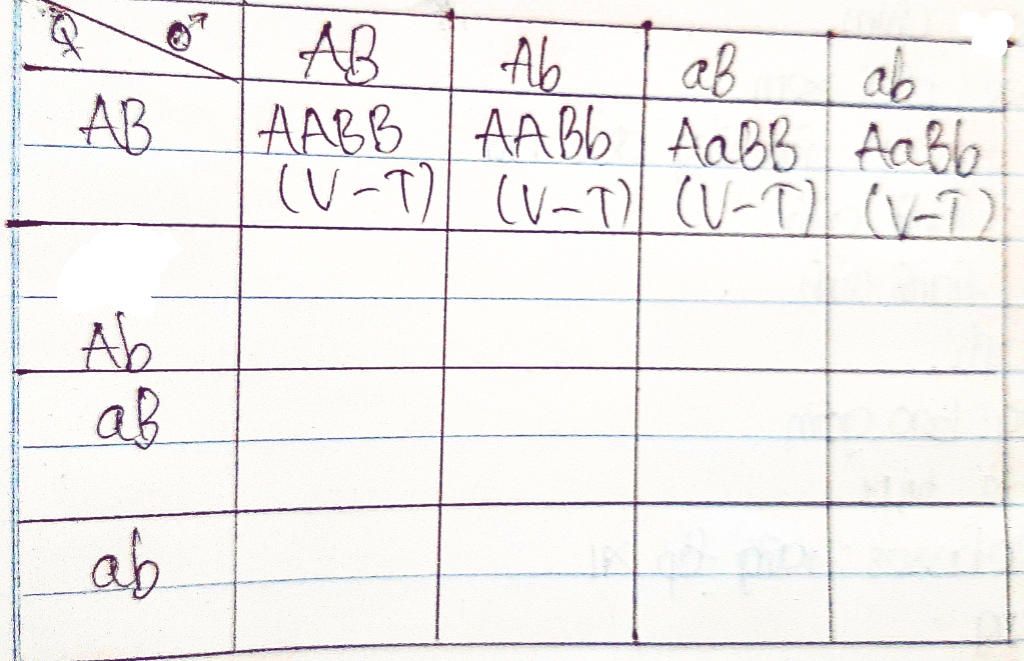 ♀ ♂ AB Ab aB ab
AB AABB AABb AaBB AaBb
(V-T) (V-T) (V-T) (V-T)
Ab
aB
ab